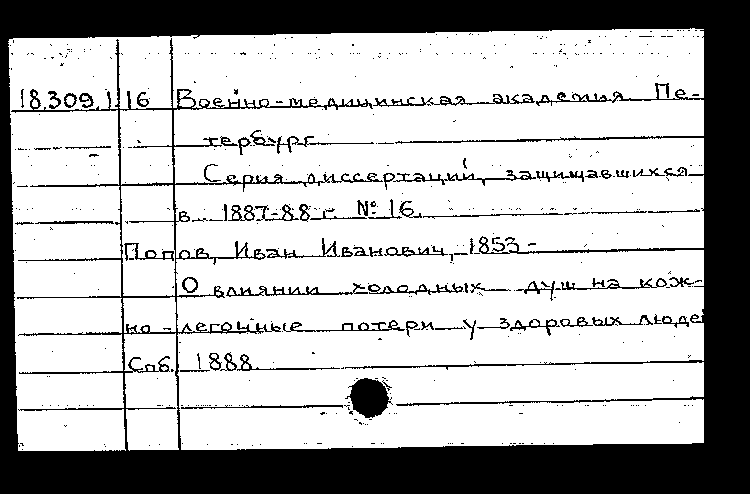 18.309.1.16 Военно-медицинская академия Пе-
тербург
Серия диссертаций, защищавшихся
в 1887-88 г. № 16.
Попов, Иван Иванович, 1853-
О влиянии холодных душ на кож-
но-легочные потери у здоровых людей
Спб. 1888.